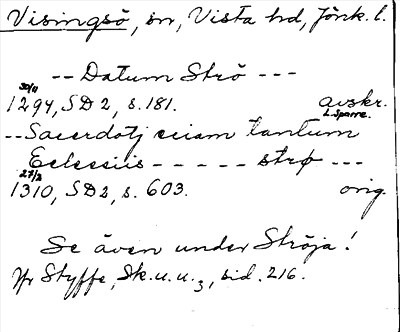 Visingsö, sn, Vista hd, Jönk. l.
-- Datum Strö ---
30/11
1294, SD 2, s. 181. avskr.
L. Sparre.
-- Sacerdotj eciam tantum
Ecclesiis ----- strø ---
27/2
1310, SD 2, s. 603. orig.
Se även under Ströja!
Jfr Styffe, Sk. u. u. 3, sid. 216.